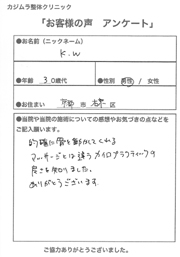 カジムラ整体クリニック
「お客様の声　アンケート」
●お名前（ニックネーム）
K.W
●年齢　30歳代
●性別　男性 / 女性
●お住まい　市　区
●当院や当院の施術についての感想やお気づきの点などを
ご記入願います。
的確に骨を動かしてくれる
マッサージとは違うカイロプラクティックの
良さを知りました。
ありがとうございます
ご協力ありがとうございました。